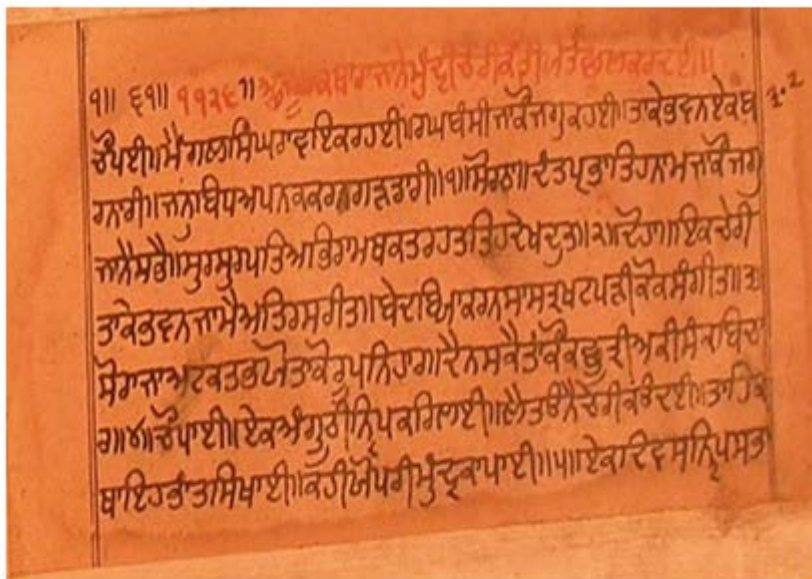 ੧॥ ੬੧॥ ੧੧੨੬ ॥ ਰਾਜਾਨੇਮੁੰਦ੍ਰੀਚੇਰੀਕੌਦੀ
ਚੌਪਈ॥ਮੈਂਗਲਸਿੰਘਰਾਵਇਕਰਹਈ॥ਰਘਬੰਸੀਜਾਕੌਜਗੁਕਹਈ॥ਤਾਕੇਭਵਨਏਕਬ
ਰਨਾਰੀ॥ਜਨੁਬਿਧਅਪਨ॥੧॥ਸੋਰਠਾ॥ਦੰਤਪ੍ਰਭਾਤਿਹਨਾਮਜਾਕੌਜਗੁ
ਜਾਨੈਸਭੈ॥ਸੁਰਸੁਰਪਤਿਅਭਿਰਾਮਥਕਤਰਹਤਤਿਹਦੇਖਦੁਤ॥੨॥ਦੋਹਰਾ॥ਇਕਚੇਰੀ
ਤਾਕੇਭਵਨਜਾਮੈਅਤਿਰਸਰੀਤ॥ਬੇਦਬਿਆਕਰਨਸਾਸਤ੍ਰਖਟਪੜੀਕੋਕਸੰਗੀਤ॥੩॥
ਸੋਰਾਜਾਅਟਕਤਭਯੋਤਾਕੋਰੂਪਨਿਹਾਰ॥ਦੈਨਸਕੈਤਾਂਕੌਕਛੁਤ੍ਰੀਅਕੀਸੰਕਬਿਚਾ
ਰ॥੪॥ਚੌਪਾਈ॥ਏਕਅੰਗੁਠੀਨ੍ਰਿਪਕਰਿਲਈ॥ਲੈਤਵਨੈਚੇਰੀਕਂਦਈ॥ਤਾਹਿਕ
ਥਾਇਹਭਾਂਤਸਿਖਾਈ॥ਕਹੀਯੋਪਰੀਮੁੰਦ੍ਰਕਾਪਾਈ॥੫॥ਏਕਦਿਵਸਨ੍ਰਿਪਸਭਾ